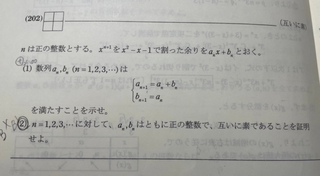 (202)
(互いに素
nは正の整数とする。x^{n+1}をx^2-x-1で割った余りをa_nx+b_nとおく。
(1) 数列a_n, b_n (n=1,2,3,…)は
a_{n+1}=a_n+b_n
b_{n+1}=a_n
を満たすことを示せ。
(2) n=1,2,3,…に対して、a_n, b_nはともに正の整数で、互いに素であることを証明
せよ。